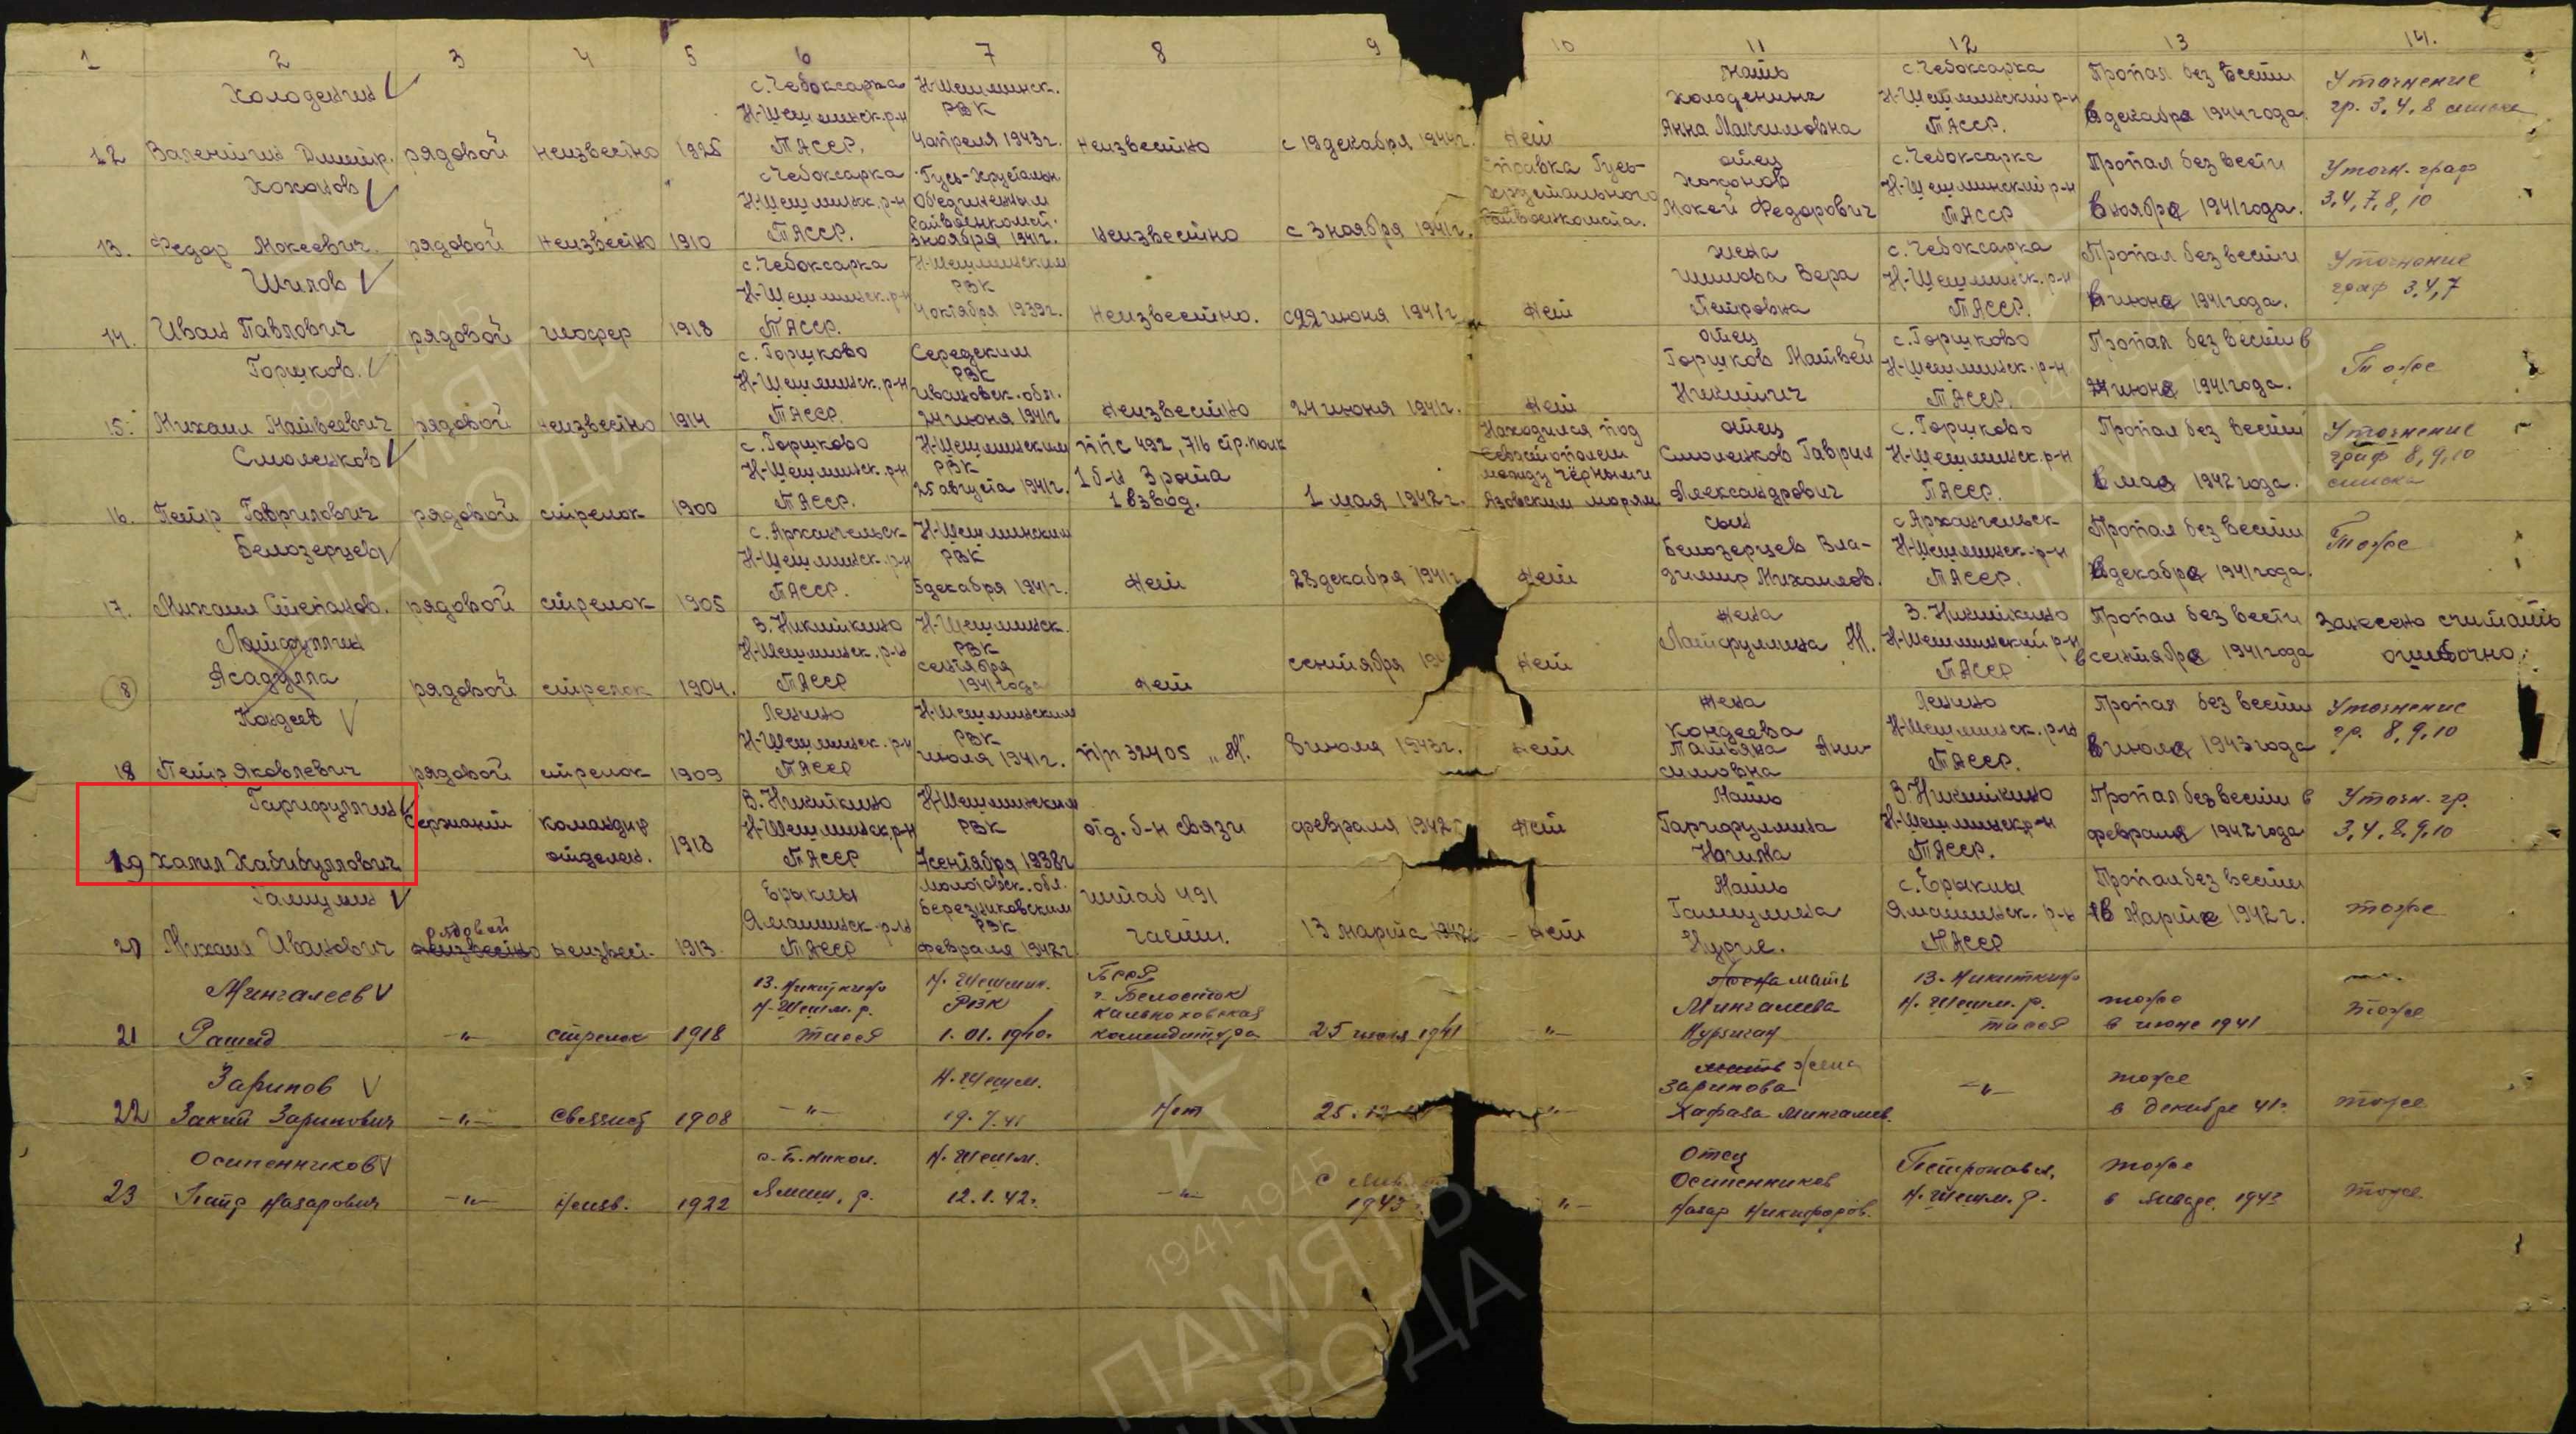 1 2 3 4 5 6 7 8 9 10 11 12 13 14.
Холоденин
12 Валентин Дмитр. рядовой неизвестно 1925 с. Чебоксарка Н-Шешминск. р-н ТАССР. Н-Шешминск. РВК 4 апреля 1943 г. неизвестно с 19 декабря 1944 г. нет Мать Холоденина Анна Максимовна с. Чебоксарка Н-Шешминский р-н ТАССР. Пропал без вести в декабре 1944 года. Уточнение гр. 3, 4, 8 списка
Хохонов
13. Федор Мокеевич. рядовой неизвестно 1910 с Чебоксарка Н-Шешминск. р-н ТАССР. Гусь-Хрустальн Объединенным Райвоенкомат. 3 ноября 1941 г. неизвестно с 3 ноября 1941 г. Справка Гусь-Хрустального Райвоенкомата. отец Хохонов Мокей Федорович с. Чебоксарка Н-Шешминский р-н ТАССР Пропал без вести в ноябре 1941 года. Уточн. граф 3, 4, 7, 8, 10
Шилов
14. Иван Павлович рядовой шофер 1918 с. Чебоксарка Н-Шешминск. р-н ТАССР. Н-Шешминским РВК 4 октября 1939 г. Неизвестно. с 22 июня 1941 г нет жена Шилова Вера Петровна с. Чебоксарка Н-Шешминск. р-н ТАССР. Пропал без вести в июне 1941 года. Уточнение граф 3, 4, 7
Горшков.
15. Михаил Матвеевич рядовой неизвестно 1914 с. Горшково Н-Шешминск. р-н ТАССР. Середским РВК Ивановск. обл. 24 июня 1941 г неизвестно 24 июня 1941 г. нет отец Горшков Матвей Никитич с. Горшково Н-Шешминск. р-н ТАССР. Пропал без вести в июне 1941 года. Тоже
Смоленков
16. Петр Гаврилович рядовой стрелок 1900 с. Горшково Н-Шешминск. р-н ТАССР. Н-Шешминским РВК 25 августа 1941 г. ППС 492, 716 стр. полк 1 б-н 3 рота 1 взвод. 1 мая 1942 г. Находился под Севастополем между Чёрным и Азовским морям отец Смоленков Гаврил Александрович с. Горшково Н-Шешминск. р-н ТАССР. Пропал без вести в мае 1942 года. Уточнение граф 8, 9, 10 списка
Белозерцев
17. Михаил Степанов. рядовой стрелок 1905 с. Архангельск Н-Шешминск. р-н ТАССР. Н-Шешминским РВК 5 декабря 1941 г. нет 23 декабря 1941 г. нет сын Белозерцев Владимир Михайлов. с Архангельск Н-Шешминск. р-н ТАССР. Пропал без вести в декабре 1941 года. Тоже
Латфуллин
8 Асадулла рядовой стрелок 1904. З. Никиткино Н-Шешминск. р-н ТАССР Н-Шешминск. РВК сентября 1941 года нет сентября нет жена Латфуллина М. З. Никиткино Н-Шешминский р-н ТАССР Пропал без вести в сентябре 1941 года Занесено считать ошибочно.
Кондеев
18 Петр Яковлевич рядовой стрелок 1909 Ленино Н-Шешминск. р-н ТАССР Н-Шешминским РВК июля 1941 г. п/п 32405 „М". 8 июля 1943 г. нет жена Кондеева Татьяна Анисимовна Ленино Н-Шешминск. р-н ТАССР. Пропал без вести в июле 1943 года Уточнение гр. 8, 9, 10
Гарифуллин
19 Халил Хабибуллович Сержант командир отделен. 1918 В. Никиткино Н-Шешминск р-н ТАССР Н-Шешминским РВК 7 сентября 1938 г отд. б-н связи февраля 1942 г нет Мать Гарифуллина Нагима В. Никиткино Н-Шешминск р-н ТАССР. Пропал без вести в феврале 1942 года Уточн. гр. 3, 4, 8, 9, 10
Галиулин
20 Михаил Иванович рядовой неизвест. 1913. Ерыклы Ямашинск. р-н ТАССР Молотовск. обл. Березниковским РВК февраля 1942 г. штаб 491 части. 13 марта 1942 г нет Мать Галиулина Нурие. с. Ерыклы Ямашинск. р-н ТАССР Пропал без вести в Марте 1942 г. тоже
Мингалеев
21 Рашид -"- стрелок 1918 В. Никиткино Н-Шешм. р. ТАССР Н. Шешмин. РВК 1. 01. 1940. БССР г. Белосток комендатура 25 июня 1941 -"- мать Мингалиева Нурзиган В. Никиткино Н. Шешм. р. ТАССР тоже в июне 1941 тоже
Зарипов
22 Закий Зарипович -"- Связист 1908 -"- Н. Шешм. 19. 7. 41 Нет 25. 12 -"- жена Зарипова Хафаза Мингалиев. -"- тоже в декабре 41 г. тоже
Осипенников
23 Петр Назарович -"- Неизв. 1922 Ямаш. р. Н. Шешм. 12. 1. 42 г. -"- с 1943 -"- Отец Осипенников Назар Никифоров. Петропавл. Н. Шешм. р. тоже в январе 1943 тоже
1941-1945
ПАМЯТЬ
НАРОДА